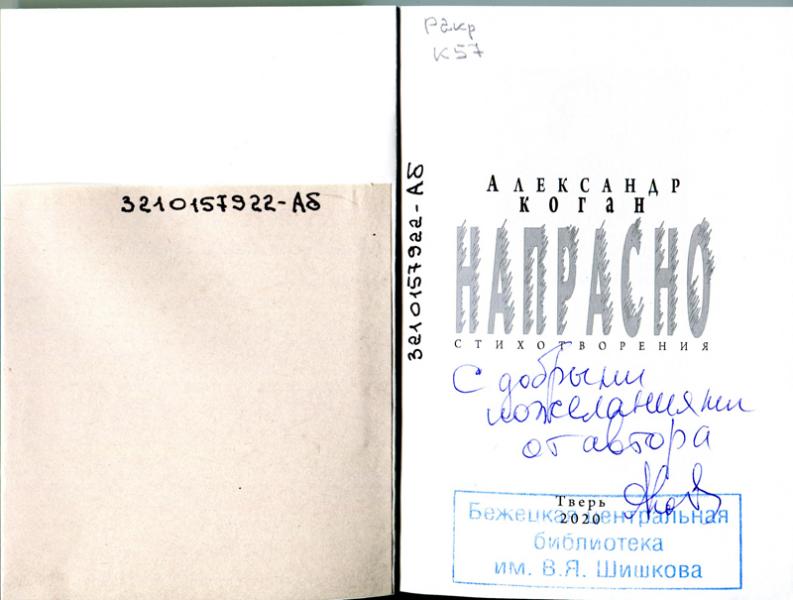 3210157922-АБ
Ракр
К57
3210157922-АБ
АЛЕКСАНДР
КОГАН
НАПРАСНО
СТИХОТВОРЕНИЯ
С добрыми
пожеланиями
от автора
Тверь
2020
Бежецкая центральная
библиотека
им. В.Я. Шишкова